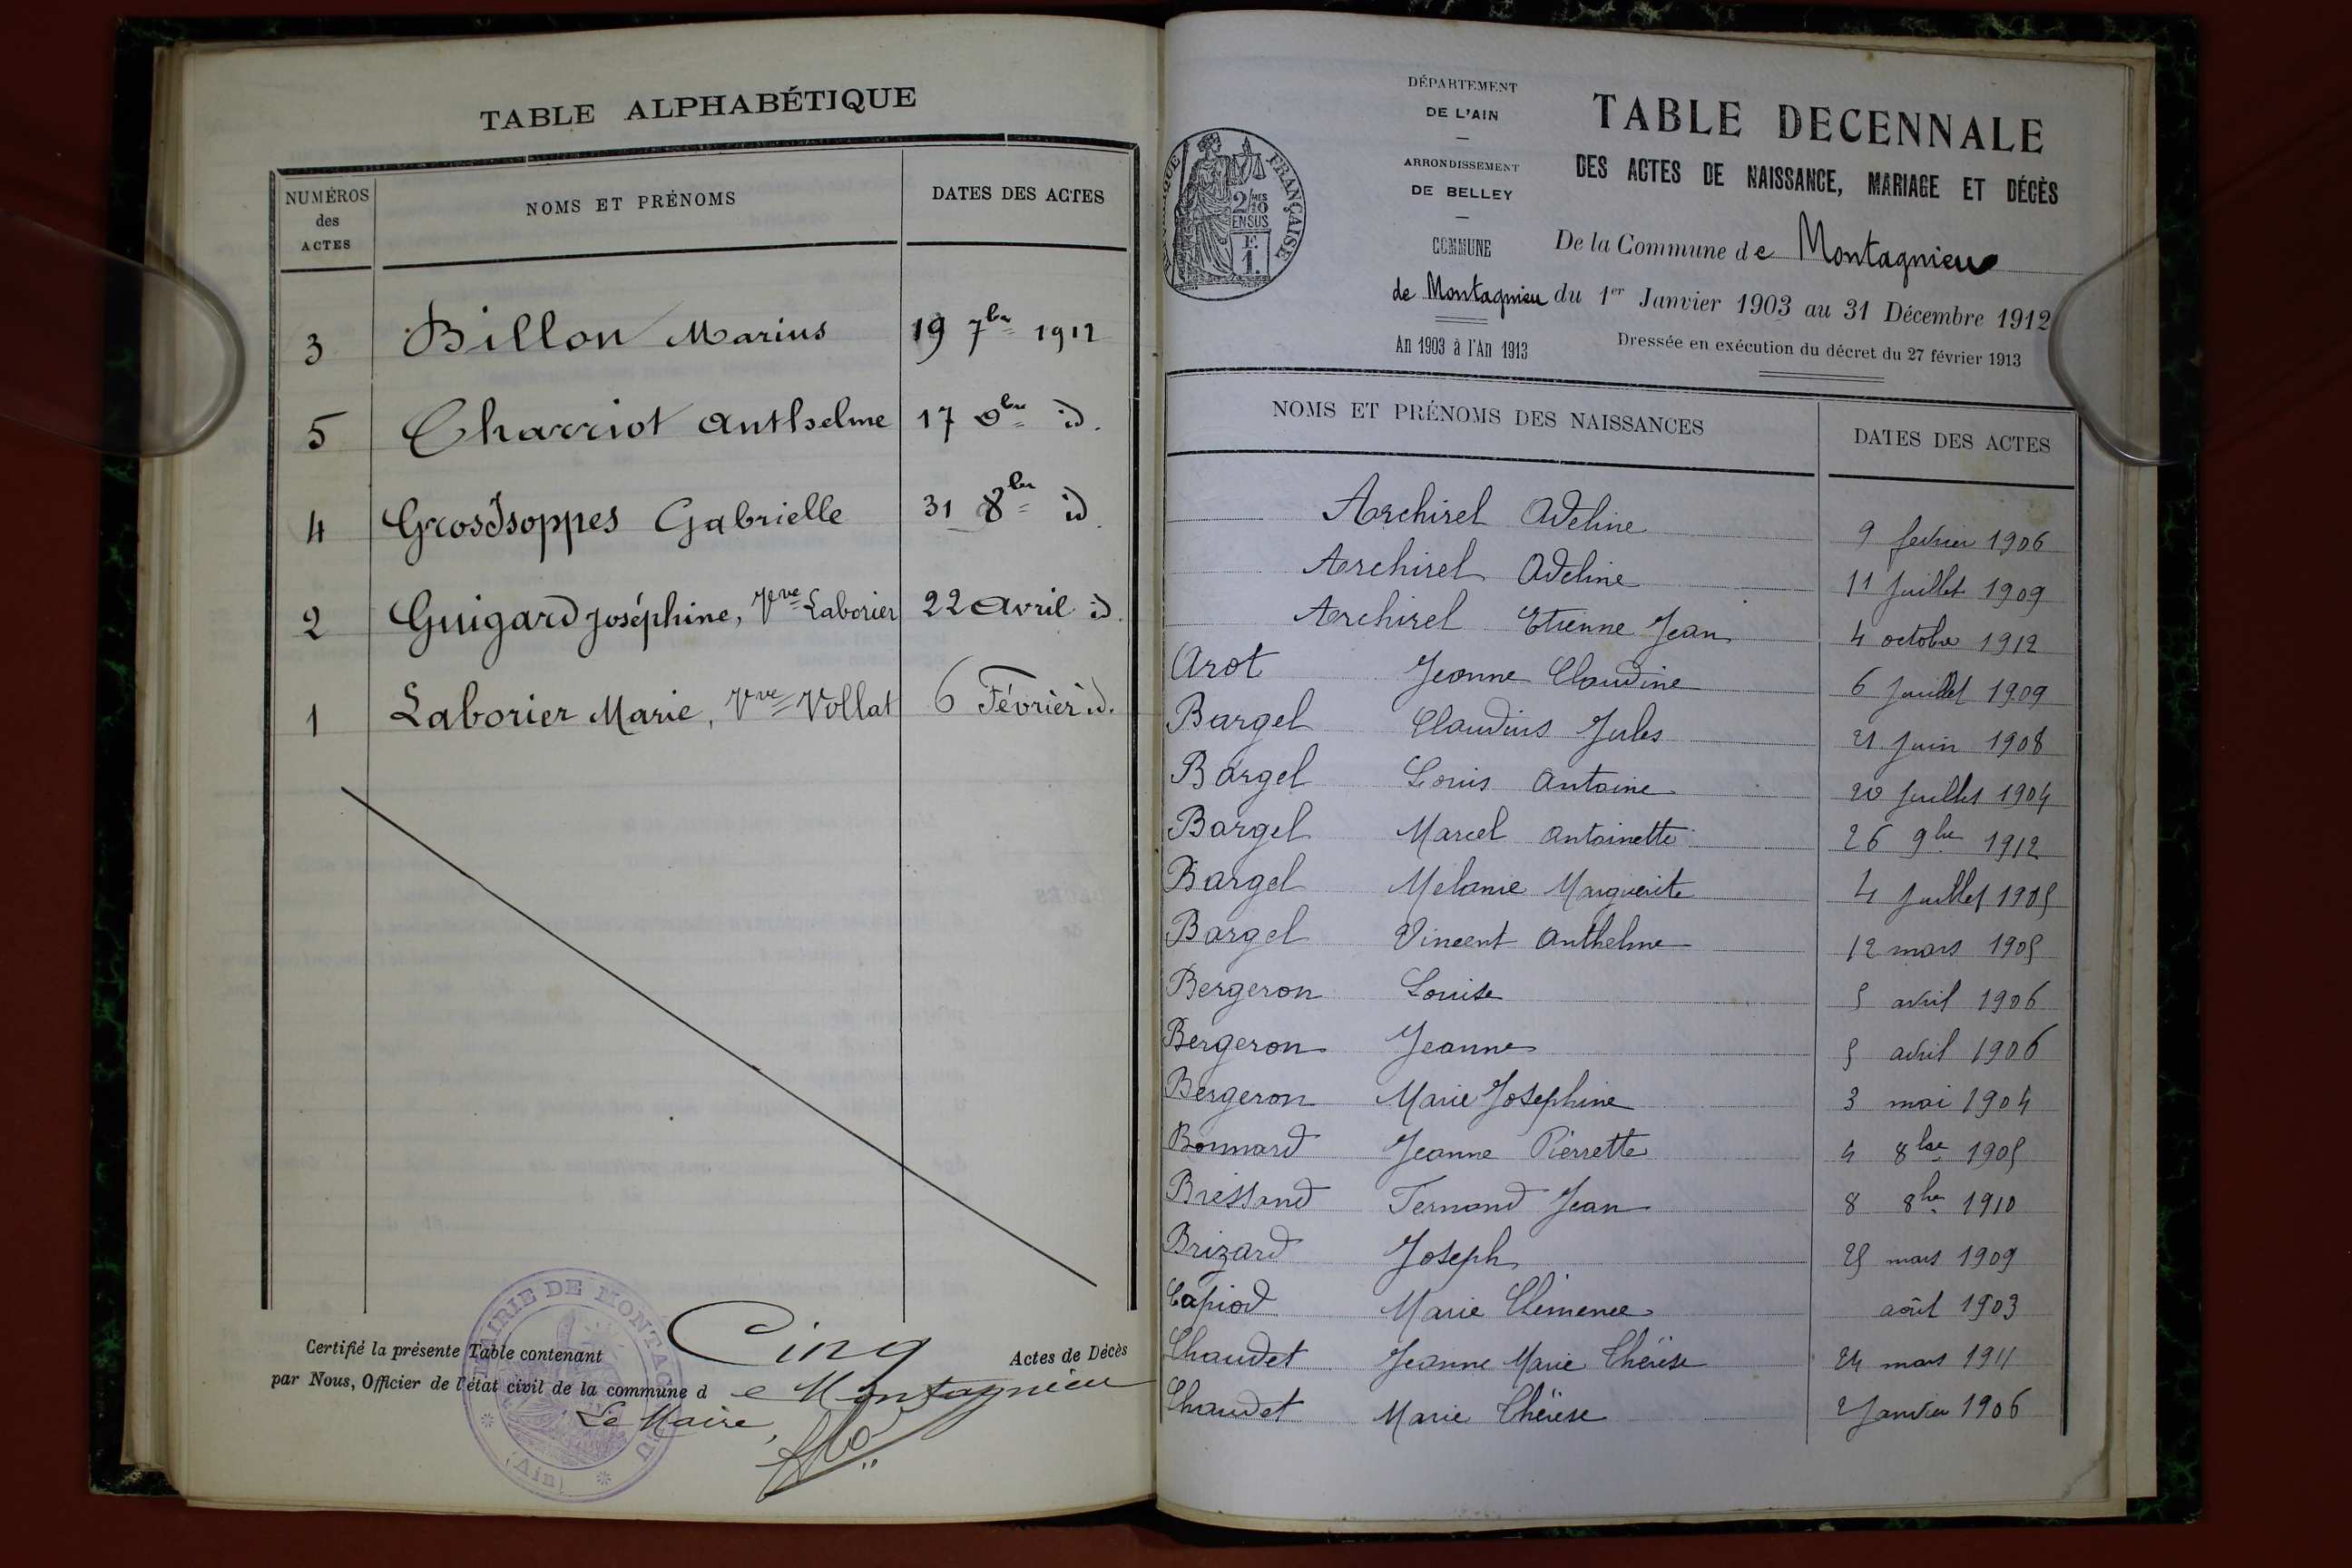 TABLE ALPHABÉTIQUE
NUMÉROS des ACTES NOMS ET PRÉNOMS DATES DES ACTES
3 Billon Marius 19 7bre 1912
5 Charriot Anthelme 17 9bre id.
4 GrosIsoppes Gabrielle 31 8bre id.
2 Guigard Joséphine, Vve Laborier 22 Avril id.
1 Laborier Marie, Vve Vollat 6 Février id.
Certifié la présente Table contenant Cinq Actes de Décès
par Nous, Officier de l'état civil de la commune de Montagnieu
Le Maire,
MAIRIE DE MONTAGNIEU
(Ain)
DÉPARTEMENT
DE L'AIN
ARRONDISSEMENT
DE BELLEY
COMMUNE
de Montagnieu
An 1903 à l'An 1913
FRANÇAISE
2/10MES
EN SUS
F.
1.
TABLE DECENNALE
DES ACTES DE NAISSANCE, MARIAGE ET DÉCÈS
De la Commune de Montagnieu
du 1er Janvier 1903 au 31 Décembre 1912
Dressée en exécution du décret du 27 février 1913
NOMS ET PRÉNOMS DES NAISSANCES DATES DES ACTES
Archirel Adeline 9 fevrier 1906
Archirel Adeline 11 Juillet 1909
Archirel Etienne Jean 4 octobre 1912
Arot Jeanne Claudine 6 Juillet 1909
Bargel Claudius Jules 21 Juin 1908
Bargel Louis Antoine 20 Juillet 1904
Bargel Marcel Antoinette 26 9bre 1912
Bargel Melanie Marguerite 4 Juillet 1905
Bargel Vincent Anthelme 12 mars 1905
Bergeron Louise 5 avril 1906
Bergeron Jeanne 5 avril 1906
Bergeron Marie Josephine 3 mai 1904
Bonnard Jeanne Pierrette 4 8bre 1905
Bressand Fernand Jean 8 8bre 1910
Brizard Joseph 25 mars 1909
Capiod Marie Clémence août 1903
Chaudet Jeanne Marie Thérèse 24 mars 1911
Chaudet Marie Thérèse 2 Janvier 1906